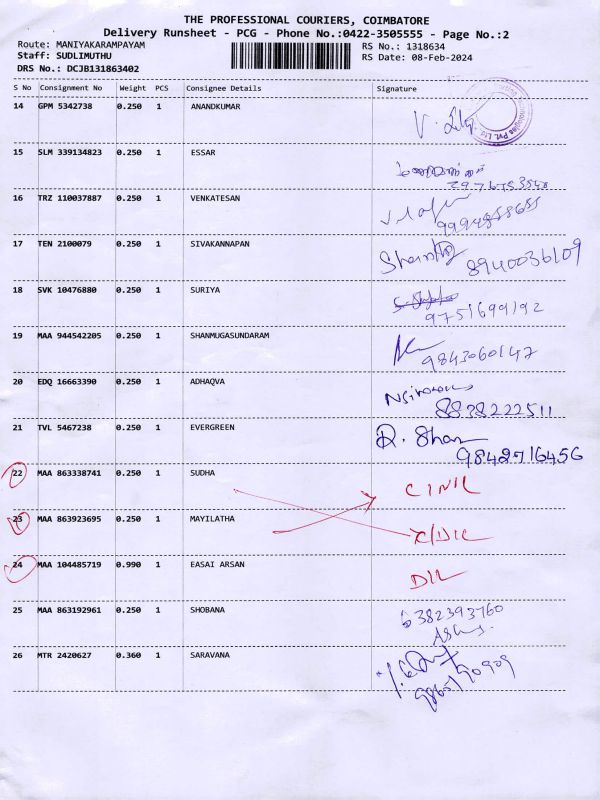 THE PROFESSIONAL COURIERS, COIMBATORE
Delivery Runsheet - PCG - Phone No.:0422-3505555 - Page No.:2
Route: MANIYAKARAMPAYAM
RS No.: 1318634
Staff: SUDLIMUTHU
RS Date: 08-Feb-2024
DRS No.: DCJB131863402
S No Consignment No Weight PCS Consignee Details Signature
14 GPM 5342738 0.250 1 ANANDKUMAR
15 SLM 339134823 0.250 1 ESSAR
16 TRZ 110037887 0.250 1 VENKATESAN
9994858655
17 TEN 2100079 0.250 1 SIVAKANNAPAN
8940036109
18 SVK 10476880 0.250 1 SURIYA
9751699192
19 MAA 944542205 0.250 1 SHANMUGASUNDARAM
9843060147
20 EDQ 16663390 0.250 1 ADHAQVA
8838222511
21 TVL 5467238 0.250 1 EVERGREEN R. Shan
9842716456
22 MAA 863338741 0.250 1 SUDHA
23 MAA 863923695 0.250 1 MAYILATHA
24 MAA 104485719 0.990 1 EASAI ARSAN DIL
25 MAA 863192961 0.250 1 SHOBANA 6382393760
26 MTR 2420627 0.360 1 SARAVANA
9865790909